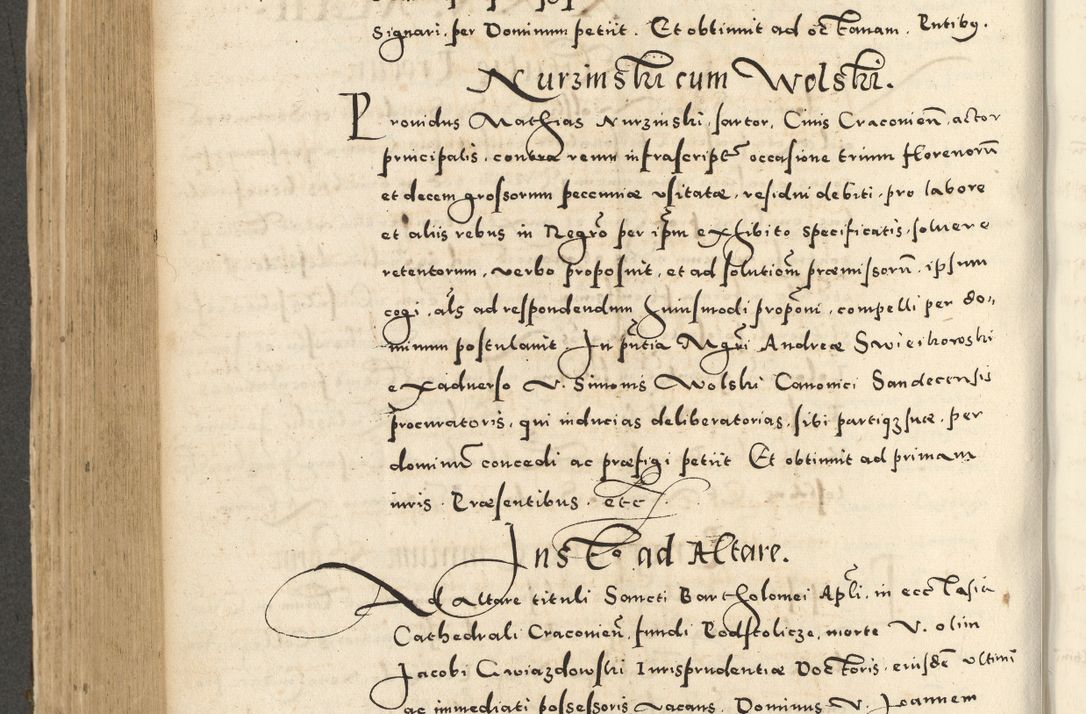 Signari, per Dominum petiit. Et obtinuit ad octauam. Pntibq.
Nurzinski cum Wolski.
Prouidus Mathias Nurzinski, sartor, Ciuis Craconien̄, actor
principalis, contra reum infrascript̄ occasione trium florenorū
et decem grossorum pecuniæ vsitatæ, residui debiti, pro labore
et aliis rebus in Regr̄o per ip̄m exhibito specificatis, soluere
retentorum, verbo proposuit, et ad solutiom̄ præmissorū, ipsum
cogi, al̄s ad respondendum huiusmodi propōni, compelli per do„
minum postulauit. In pn̄tia Mgr̄i Andreæ Swieikowski
exaduerso V. Simonis Wolski Canonici Sandecensis
procuratoris, qui inducias deliberatorias, sibi partiqꝫ suæ, per
dominū concedi ac præfigi petiit Et obtinuit ad primam
iuris. Præsentibus. etc
Insto ad Altare.
Ad Altare tituli Sancti Bartholomei Apl̄i, in ecclesia
Cathedrali Craconien̄, fundi Podstolicze, morte V. olim
Jacobi Gwiazdowski Iurisprudentiæ Doctoris, eiusdē vltimi
ac immediati possessoris vacans, Dominus V. Joannem